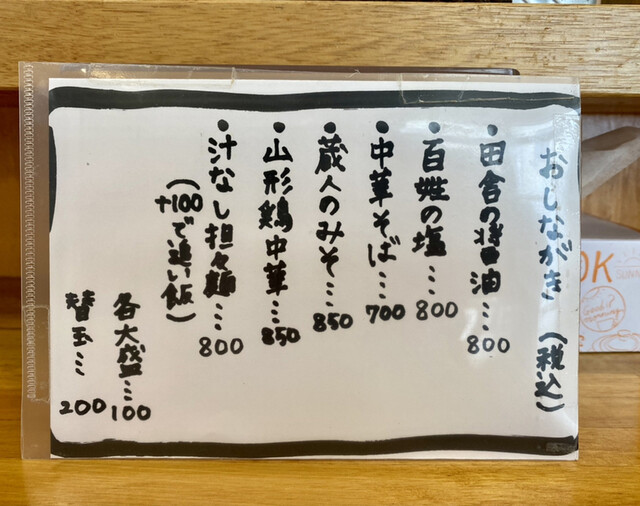 おしながき (税込)
・田舎の醤油…800
・百姓の塩…800
・中華そば…700
・蔵人のみそ…850
・山形鶏中華…850
・汁なし担々麺…800
(+100で追い飯)
各大盛…100
替玉…200
OK